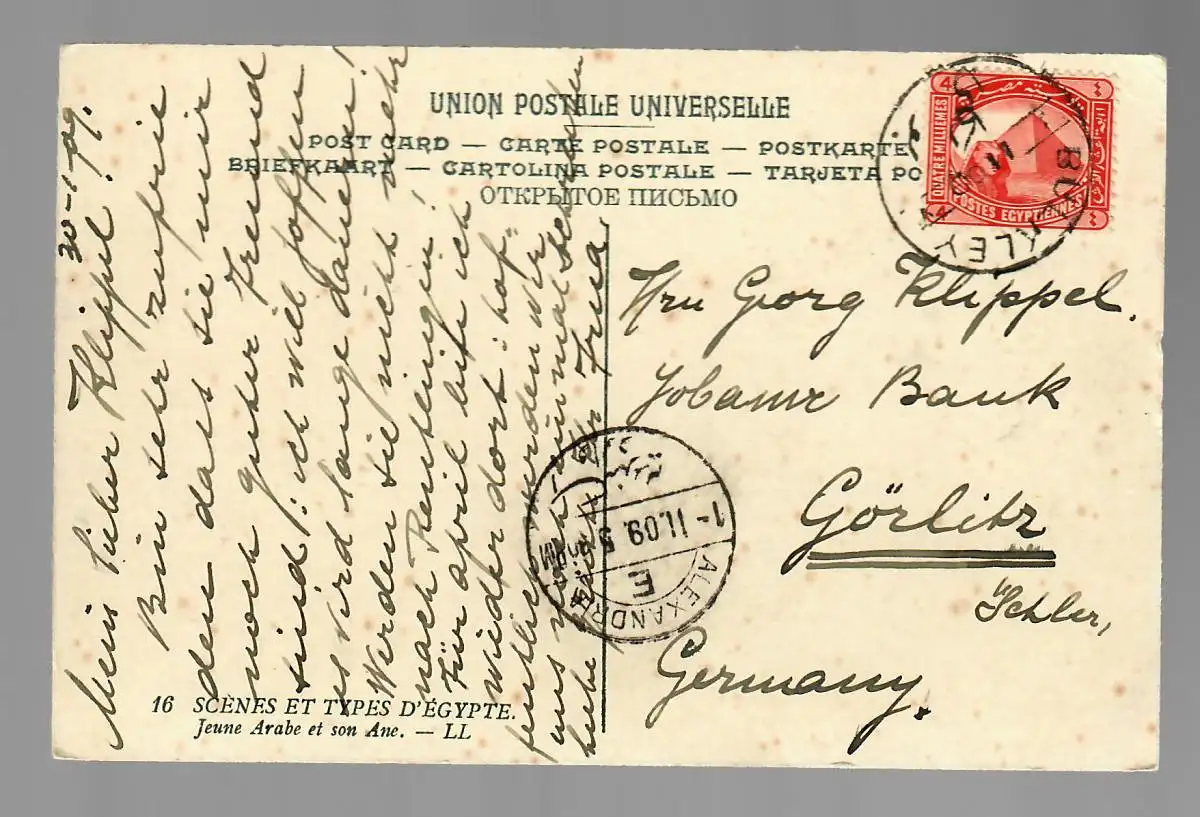 UNION POSTALE UNIVERSELLE
POST CARD — CARTE POSTALE — POSTKARTE
BRIEFKAART — CARTOLINA POSTALE — TARJETA PO
ОТКРЫТОЕ ПИСЬМО
30-1-09.
Mein lieber Klippel!
Bin sehr zufrie
den dass sie mir
noch guter Freund
sind! ich will hoffen
es wird lange dauern!
Werden sie nicht mehr
nach Reutlingin!
Für april bite ich
wieder dort: hof-
fentlich werden wir
uns noch einmal sehen
habe
Ihr Frua
Hrn Georg Klippel.
Bank
Görlitz
Schler,
Germany.
4 QUATRE MILLIEMES
POSTES EGYPTIENNES
BULKALEY
ALEXANDRIA
1-II.09. 5
PM
E
16 SCÈNES ET TYPES D'ÉGYPTE.
Jeune Arabe et son Ane. — LL